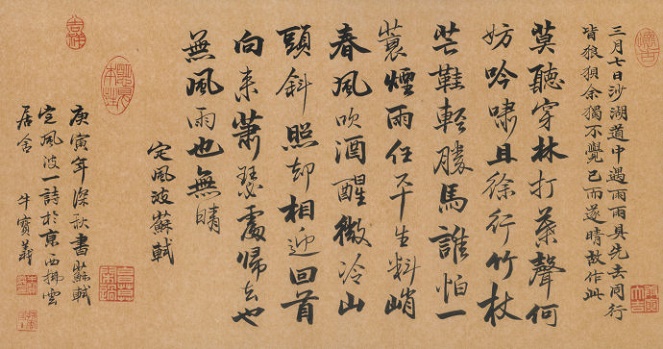 三月七日沙湖道中遇雨雨具先去同行
皆狼狽余獨不覺已而遂晴故作此
莫聽穿林打葉聲何
妨吟嘯且徐行竹杖
芒鞋輕勝馬誰怕一
蓑煙雨任平生料峭
春風吹酒醒微冷山
頭斜照却相迎回首
向來蕭瑟處歸去也
無風雨也無晴
定風波蘇軾
庚寅年深秋書蘇軾
定風波一詩於京西拂雲
居舍 牛寶義